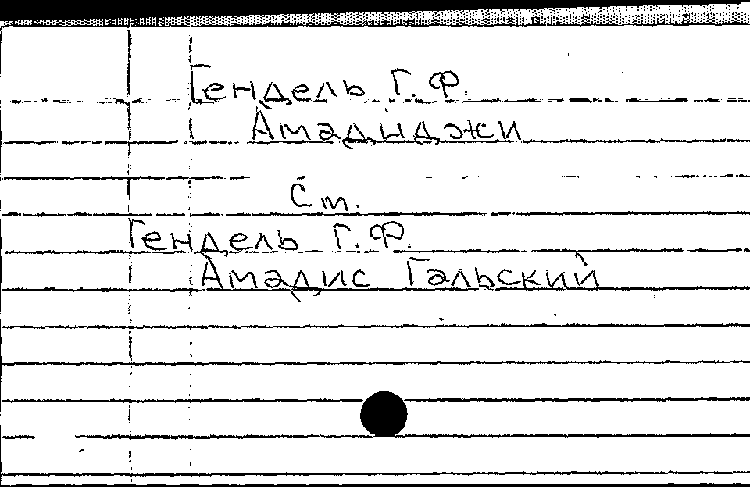 Гендель Г. Ф.
Амадиджи
См.
Гендель Г. Ф.
Амадис Гальский